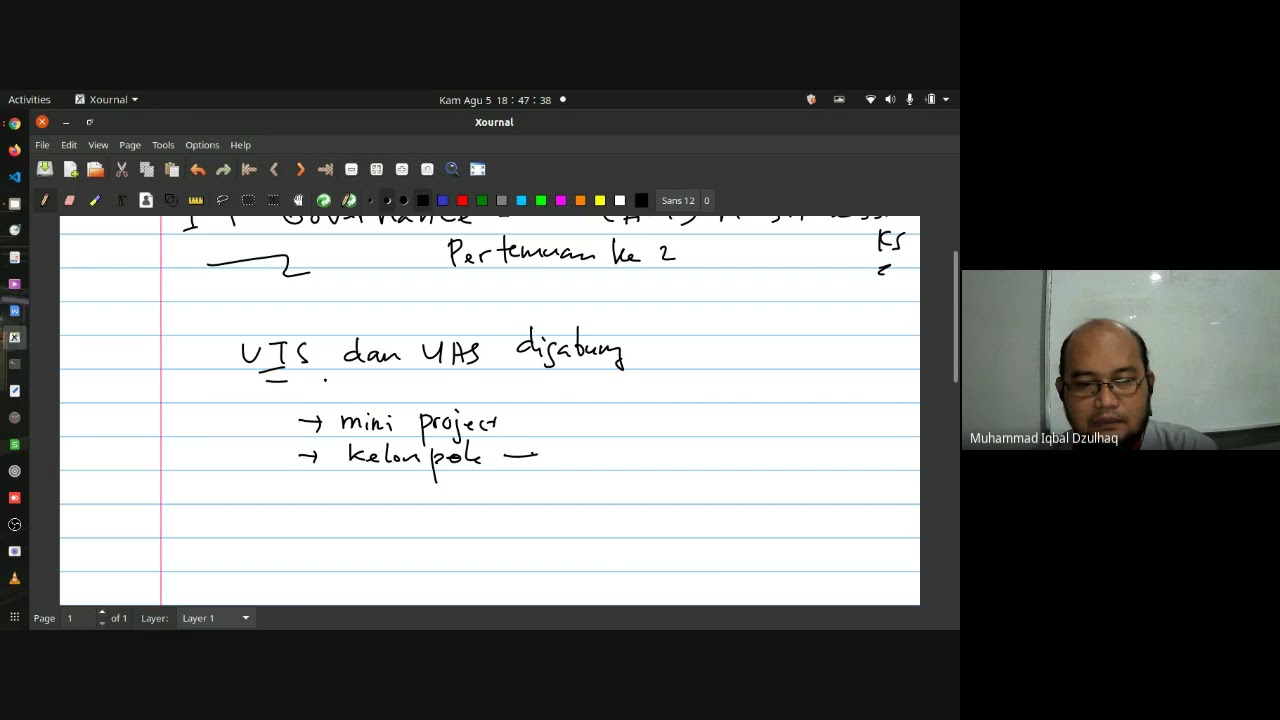 Activities Xournal Kam Agu 5 18:47:38
Xournal
File Edit View Page Tools Options Help
Sans 12 0
IT Governance -
Pertemuan ke 2
KS
UTS dan UAS digabung
→ mini project
→ kelompok —
Page 1 of 1 Layer: Layer 1
Muhammad Iqbal Dzulhaq